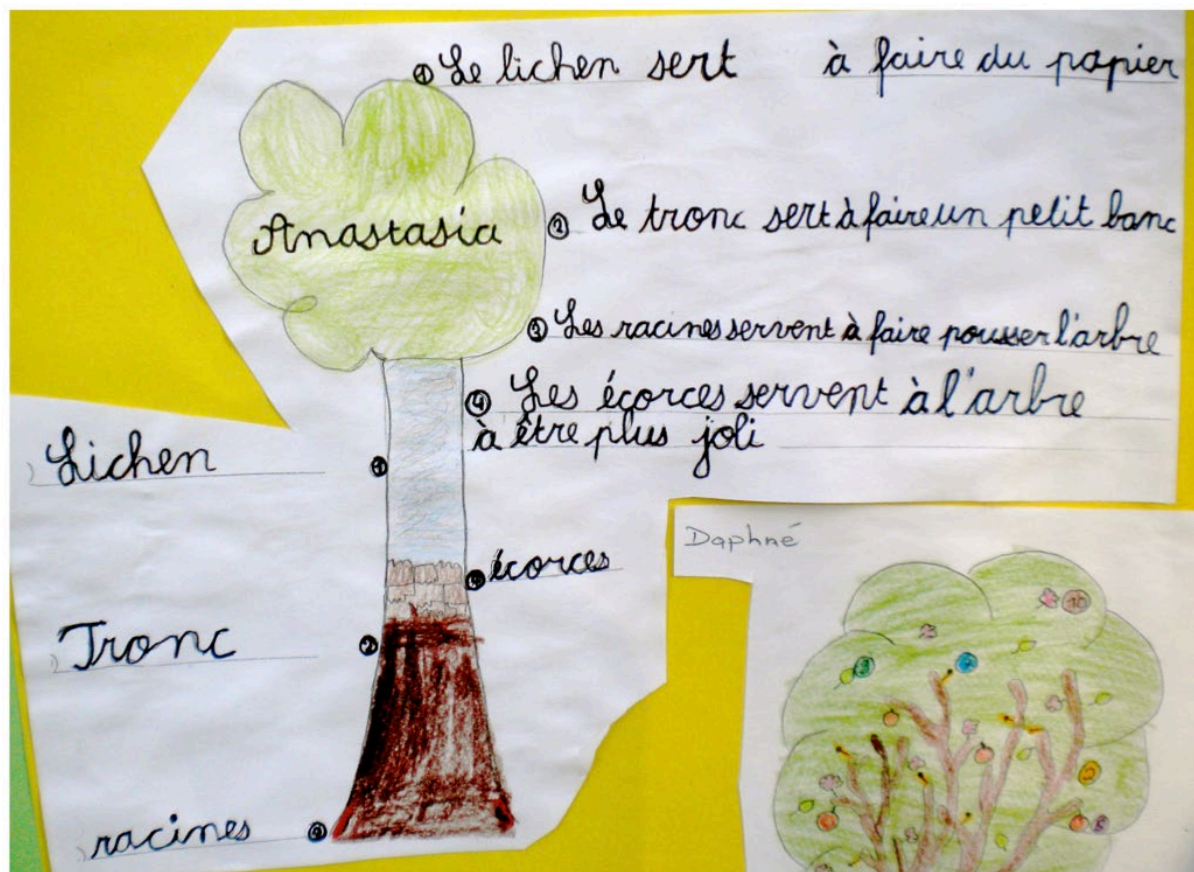 ① Le lichen sert à faire du papier
Anastasia
② Le tronc sert à faire un petit banc
③ Les racines servent à faire pousser l'arbre
④ Les écorces servent à l'arbre
à être plus joli
Lichen ①
④ écorces
Tronc ②
racines ③
Daphné